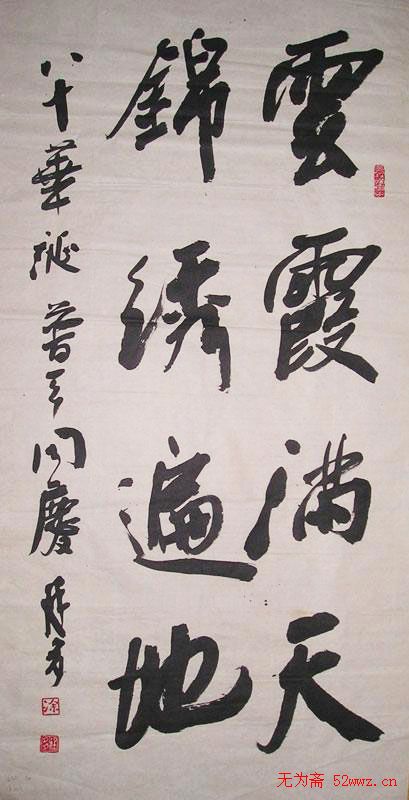 雲霞满天
錦绣遍地
八十華诞普天同慶
无为斋 52wwz.cn